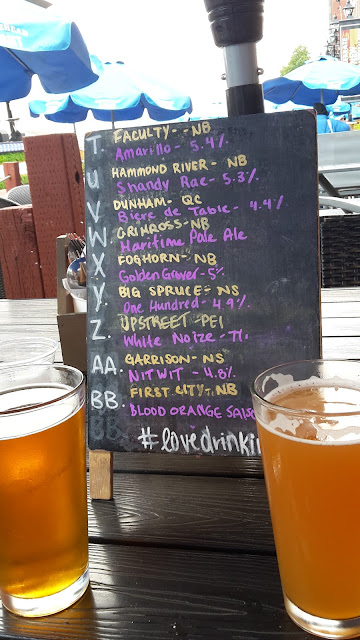 T. FACULTY - NB
Amarillo - 5.4%
U HAMMOND RIVER - NB
Shandy Rae - 5.3%
V DUNHAM - QC
Bière de Table - 4.4%
W GRIMROSS - NB
Maritime Pale Ale
X FOGHORN - NB
Golden Grover - 5%
Y. BIG SPRUCE - NS
One Hundred - 4.9%
Z. UPSTREET - PEI
White Noize - 7%
AA. GARRISON - NS
NITWIT - 4.8%
BB. FIRST CITY - NB
BLOOD ORANGE
#lovedrinki